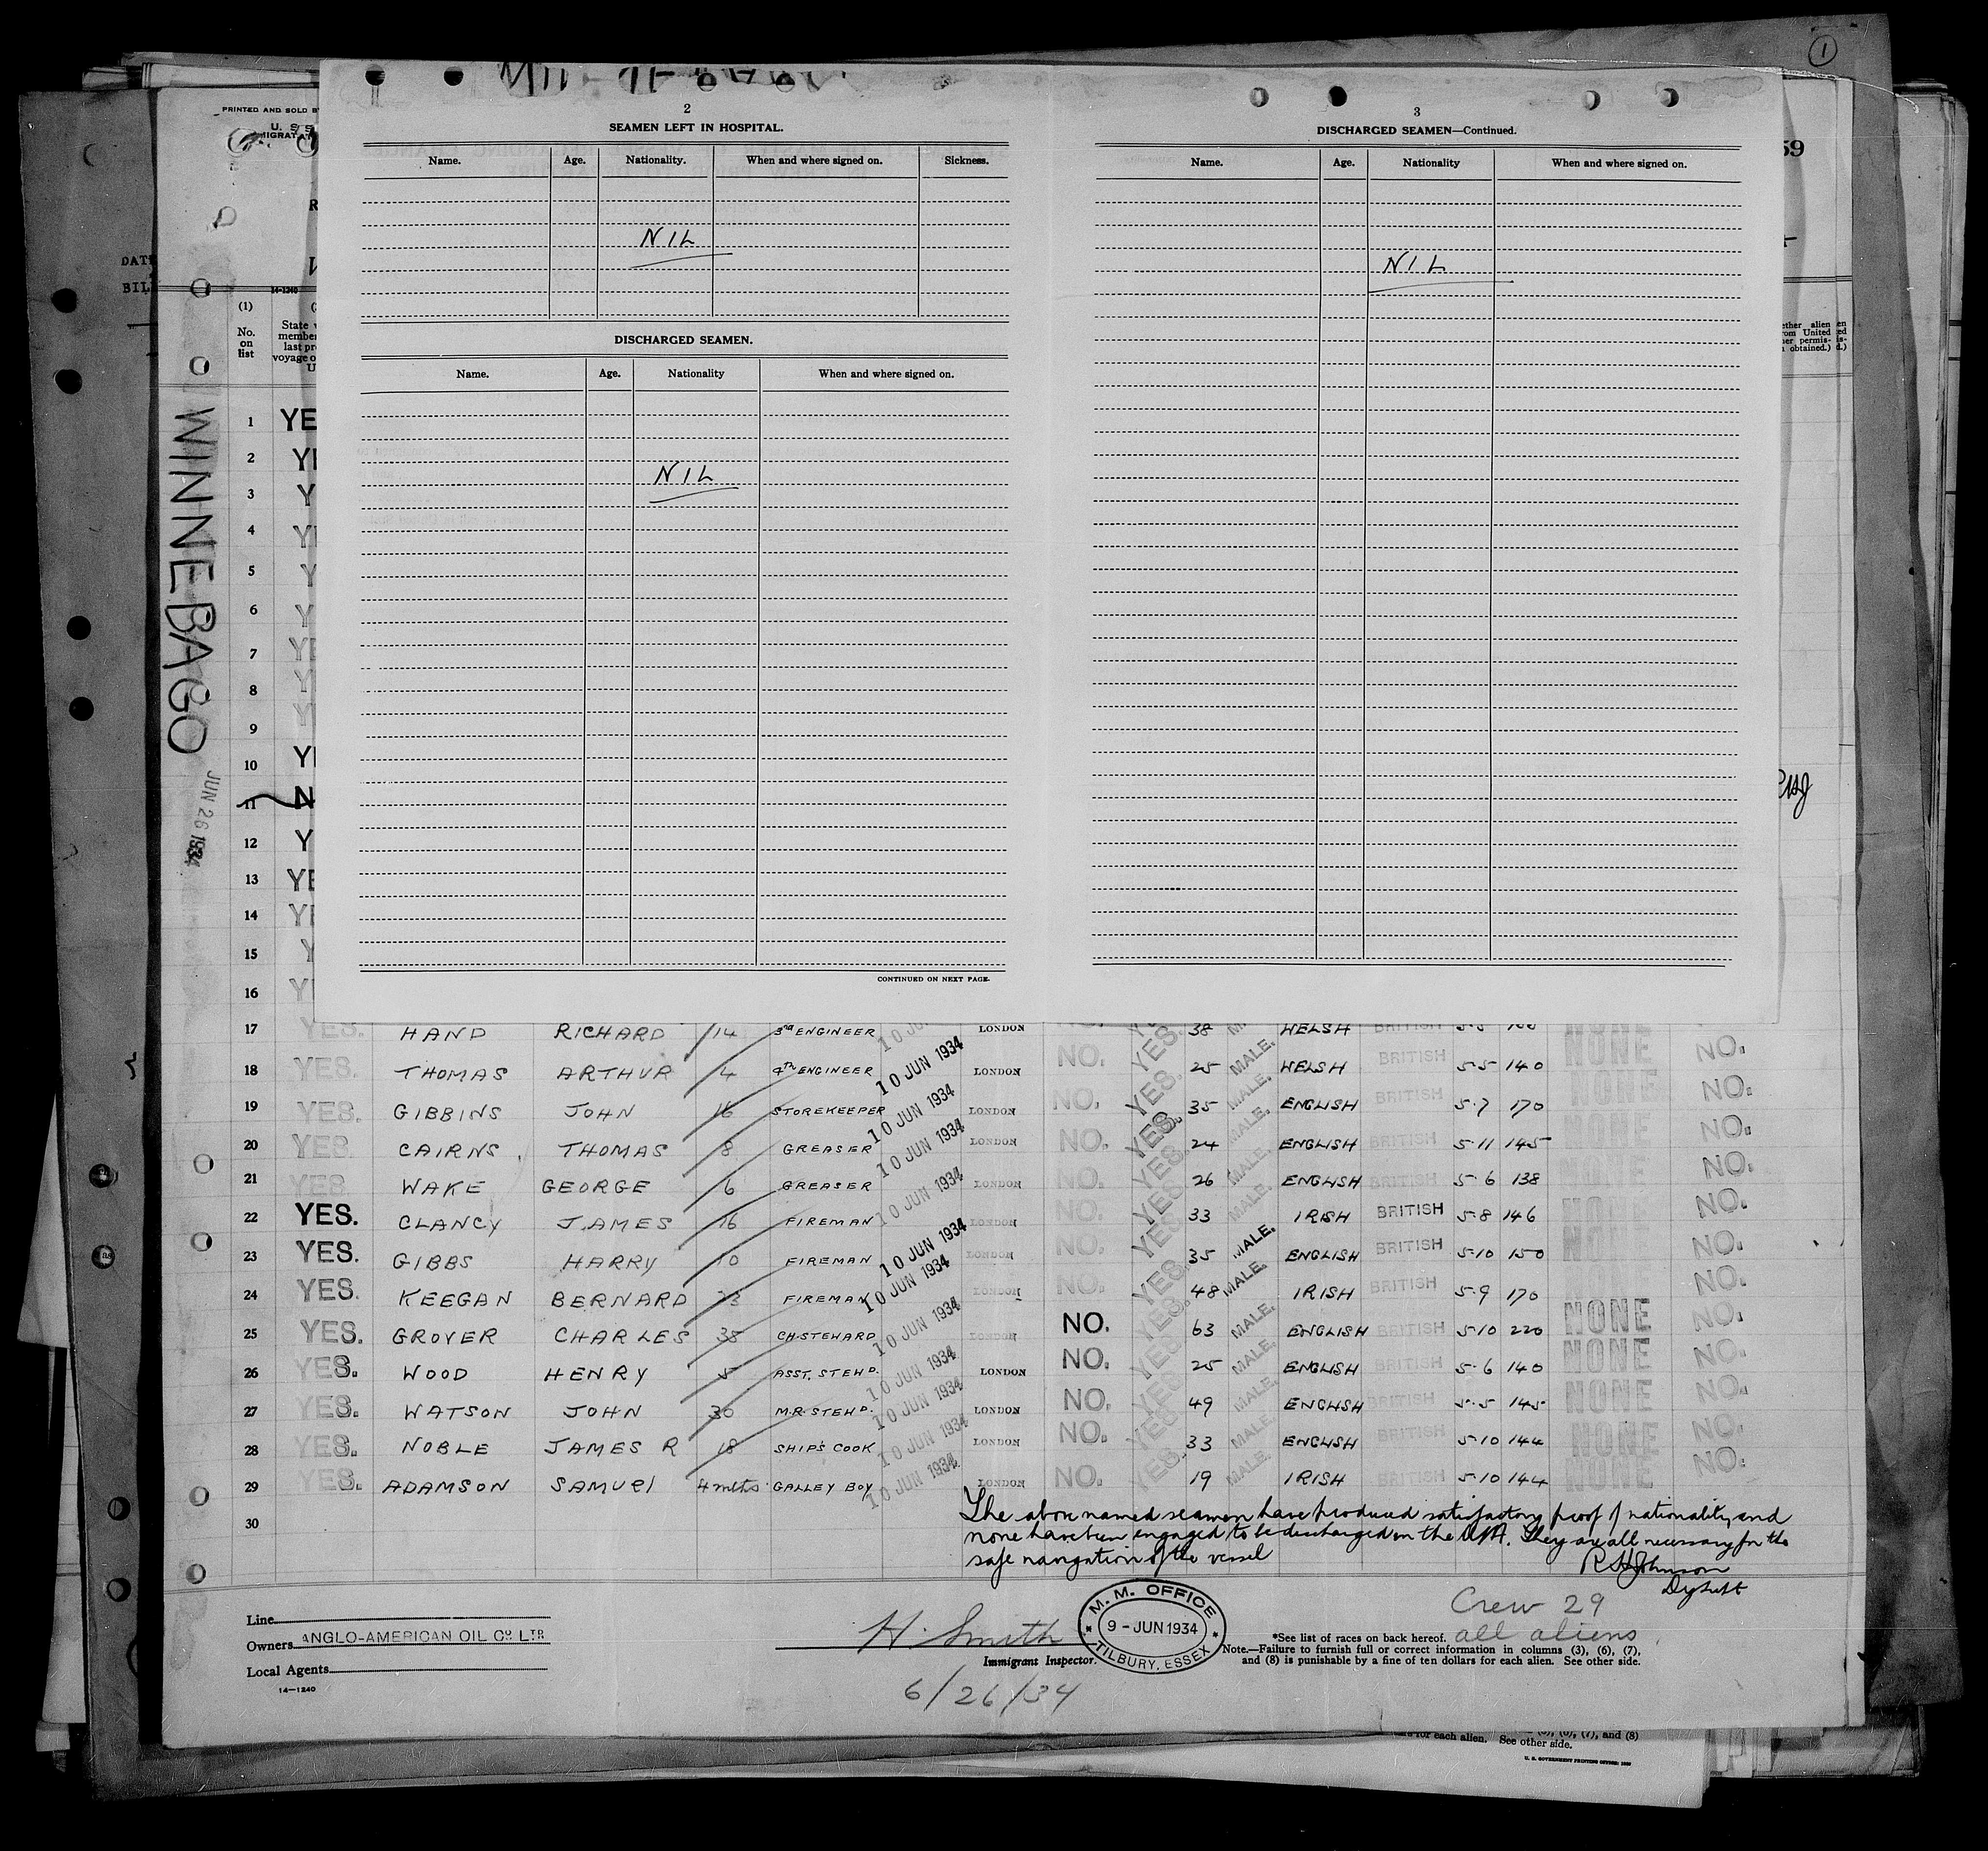 1
2
SEAMEN LEFT IN HOSPITAL.
Name. Age. Nationality. When and where signed on. Sickness.
NIL
DISCHARGED SEAMEN.
Name. Age. Nationality When and where signed on.
NIL
CONTINUED ON NEXT PAGE.
3
DISCHARGED SEAMEN—Continued.
Name. Age. Nationality When and where signed on.
NIL
PRINTED AND SOLD B
U. S.
59
DATE
BILL
14-1240
(1)
No. on list
State
member
last pr
voyage o
U
WINNEBAGO
JUN 26 1934
1 YE
2 YE
3 Y
4 YE
5 Y
6 Y
7 YE
8 Y
9 Y
10 YE
11 N
12 Y
13 YE
14 YE
15 Y
16 YE
17 YES. HAND RICHARD 14 3rd ENGINEER LONDON 38 WELSH BRITISH
18 YES. THOMAS ARTHUR 4 4TH ENGINEER 10 JUN 1934 LONDON NO. YES. 25 MALE. WELSH BRITISH 5-5 140 NONE NO.
19 YES. GIBBINS JOHN 16 STOREKEEPER 10 JUN 1934 LONDON NO. YES. 35 MALE. ENGLISH BRITISH 5-7 170 NONE NO.
20 YES. CAIRNS THOMAS 8 GREASER 10 JUN 1934 LONDON NO. YES. 24 MALE. ENGLISH BRITISH 5-11 145 NO.
21 YES WAKE GEORGE 6 GREASER 10 JUN 1934 LONDON NO. YES. 26 MALE. ENGLISH BRITISH 5-6 138 NONE NO.
22 YES. CLANCY JAMES 16 FIREMAN 10 JUN 1934 LONDON NO. YES. 33 MALE. IRISH BRITISH 5-8 146 NONE NO.
23 YES. GIBBS HARRY 10 FIREMAN 10 JUN 1934 LONDON NO. YES. 35 MALE. ENGLISH BRITISH 5-10 150 NONE NO.
24 YES. KEEGAN BERNARD 23 FIREMAN 10 JUN 1934 LONDON NO. YES. 48 MALE. IRISH BRITISH 5-9 170 NO.
25 YES. GROVER CHARLES 38 CH. STEWARD 10 JUN 1934 LONDON NO. YES. 63 MALE. ENGLISH BRITISH 5-10 220 NONE NO.
26 YES. WOOD HENRY 5 ASST. STEWD. 10 JUN 1934 LONDON NO. YES. 25 MALE. ENGLISH BRITISH 5-6 140 NONE NO.
27 YES. WATSON JOHN 30 M.R. STEWD. 10 JUN 1934 LONDON NO. YES. 49 MALE. ENGLISH BRITISH 5-5 145 NONE NO.
28 YES. NOBLE JAMES R 18 SHIP'S COOK 10 JUN 1934 LONDON NO. YES. 33 MALE. ENGLISH BRITISH 5-10 144 NONE NO.
29 YES. ADAMSON SAMUEl 4 mths GALLEY BOY 10 JUN 1934 LONDON NO. YES. 19 MALE. IRISH BRITISH 5-10 144 NONE NO.
30
The above named seamen have produced satisfactory proof of nationality and
none have been engaged to be discharged in the USA. They are all necessary for the
safe navigation of the vessel
R H Johnson
Dy Supt
Line
Owners ANGLO-AMERICAN OIL CO. LTD
Local Agents
14—1240
H. Smith
Immigrant Inspector.
6/26/34
M. M. OFFICE
9 - JUN 1934
TILBURY, ESSEX
Crew 29
all aliens
*See list of races on back hereof.
Note.—Failure to furnish full or correct information in columns (3), (6), (7),
and (8) is punishable by a fine of ten dollars for each alien. See other side.
for each alien. See other side.
(6), (7), and (8)
U. S. GOVERNMENT PRINTING OFFICE